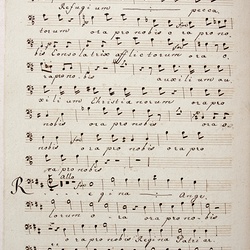 Refugium pecca
torum ora pro nobis o ra pro no.
bis Consolatrix afflictorum ora o.
ra pro no bis auxilium au
xilium Christianorum ora pro
nobis ora pro nobis ora pro
nobis ora pro nobis ora
ra pro nobis
Allo
Regina Ange.
lorum o ra ora pro no bis
ora pro nobis Regina Patriar.